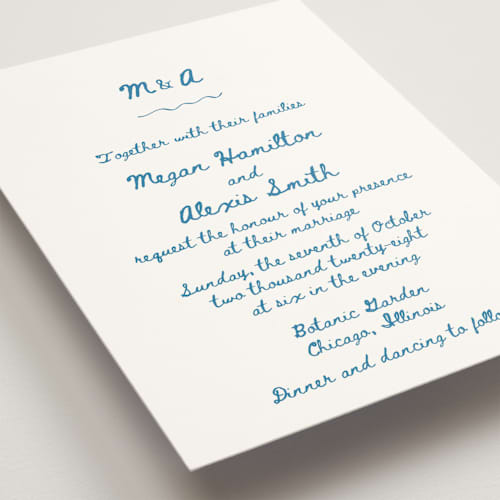 M & A
Together with their families
Megan Hamilton
and
Alexis Smith
request the honour of your presence
at their marriage
Sunday, the seventh of October
two thousand twenty-eight
at six in the evening
Botanic Garden
Chicago, Illinois
Dinner and dancing to